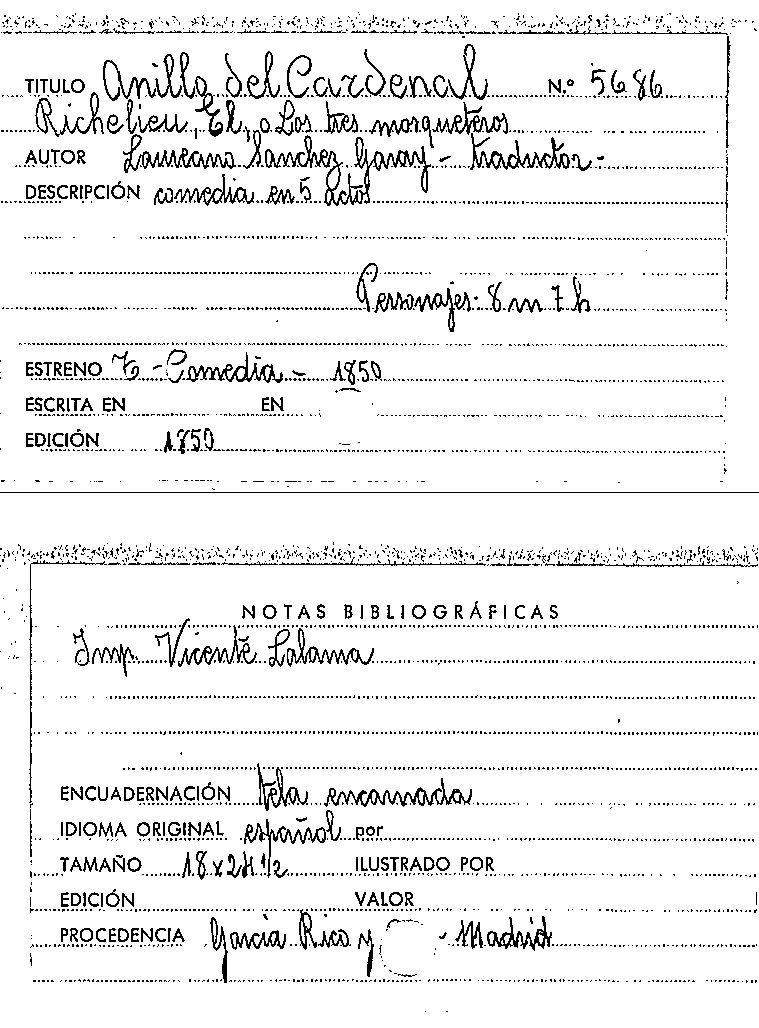 TITULO Anillo del Cardenal N.º 5686
Richelieu, El, o Los tres mosqueteros
AUTOR Laureano Sanchez Garay - traductor -
DESCRIPCIÓN comedia en 5 actos
Personajes- 8 m 7 h
ESTRENO T. - Comedia - 1850
ESCRITA EN EN
EDICIÓN 1850
NOTAS BIBLIOGRÁFICAS
Imp. Vicente Lalama
ENCUADERNACIÓN tela encarnada
IDIOMA ORIGINAL español por
TAMAÑO 18 x 24 1/2 ILUSTRADO POR
EDICIÓN VALOR
PROCEDENCIA Garcia Rico y - Madrid